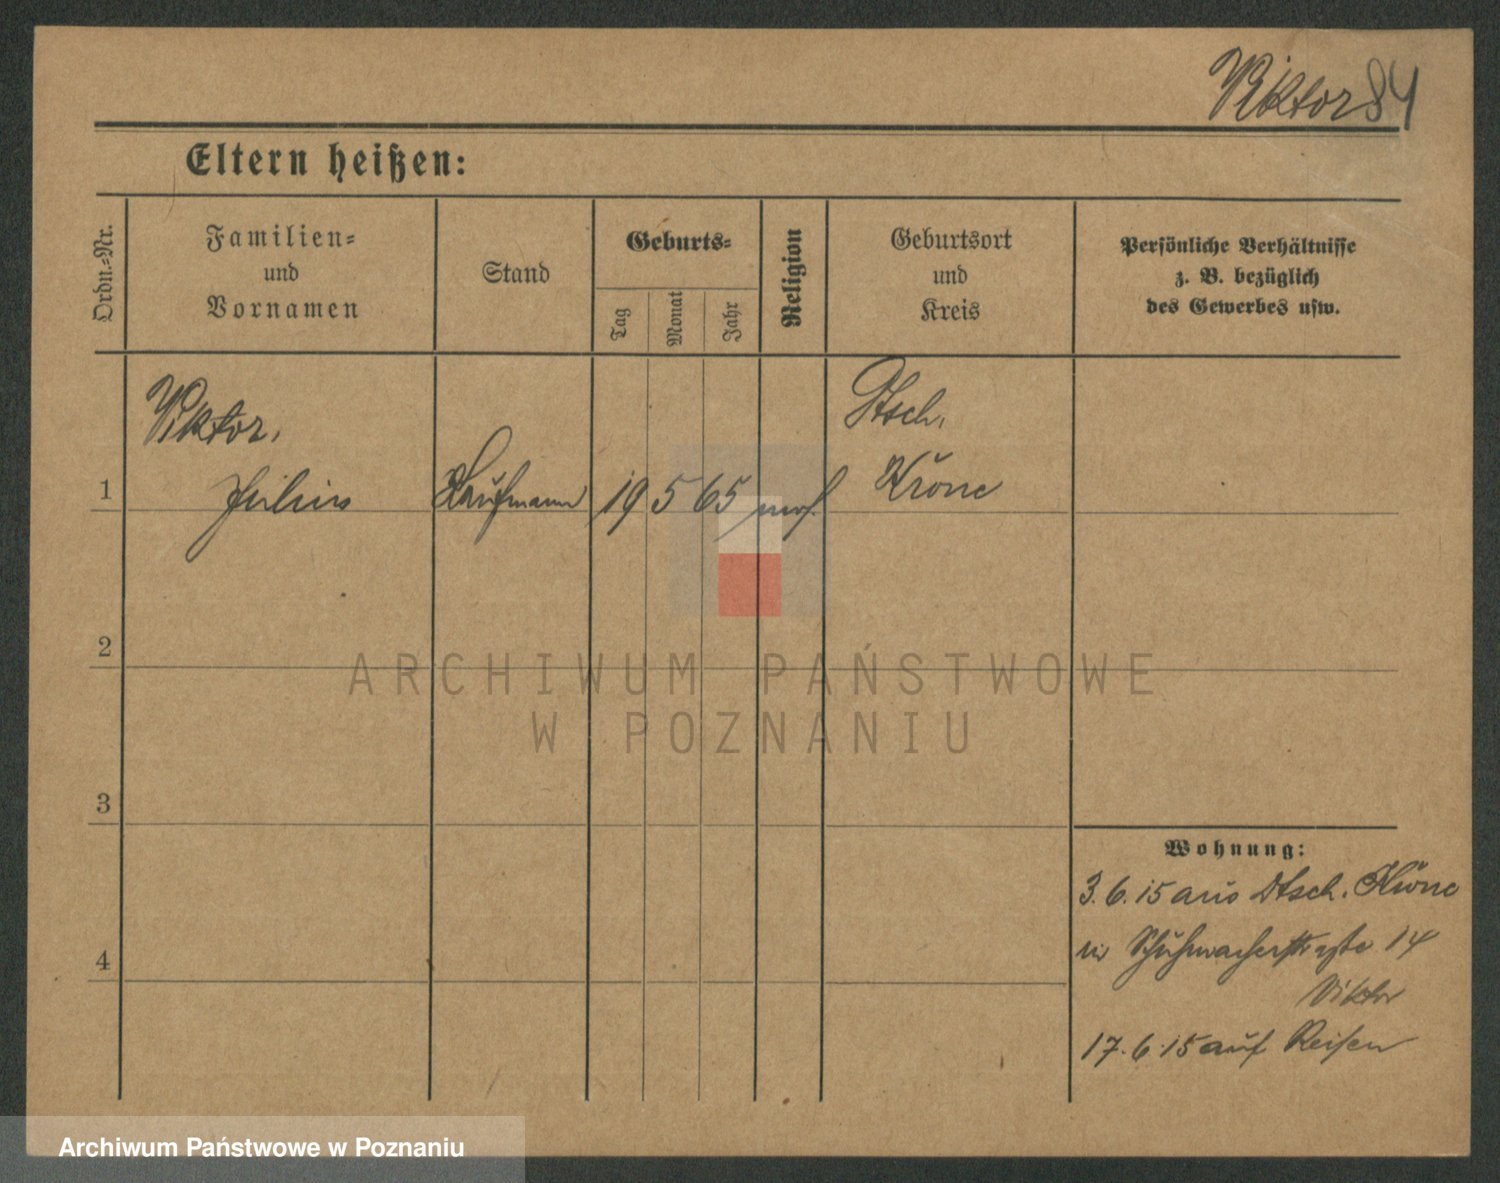 Viktor 84
Eltern heißen:
Ordn.-Nr.
Familien-
und
Vornamen
Stand
Geburts-
Tag
Monat
Jahr
Religion
Geburtsort
und
Kreis
Persönliche Verhältnisse
z. B. bezüglich
des Gewerbes usw.
Viktor,
Dtsch.
1 Julius Kaufmann 19 5 65 mos. Krone
2
3
4
Wohnung:
3.6.15 aus Dtsch. Krone
in Schuhmacherstraße 14
Viktor
17.6.15 auf Reisen
ARCHIWUM PAŃSTWOWE
W POZNANIU
Archiwum Państwowe w Poznaniu